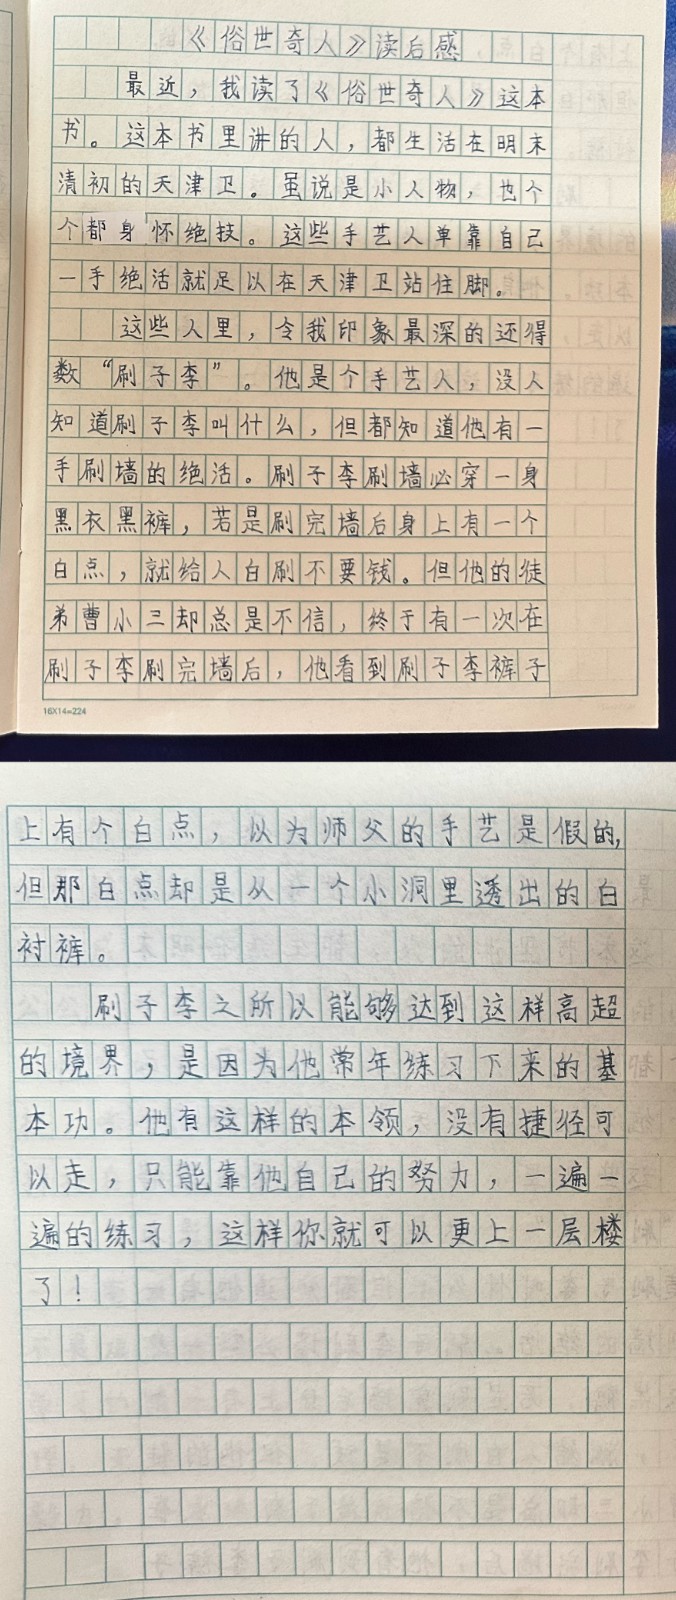 《俗世奇人》读后感
最近，我读了《俗世奇人》这本
书。这本书里讲的人，都生活在明末
清初的天津卫。虽说是小人物，也个
个都身怀绝技。这些手艺人单靠自己
一手绝活就足以在天津卫站住脚。
这些人里，令我印象最深的还得
数“刷子李”。他是个手艺人，没人
知道刷子李叫什么，但都知道他有一
手刷墙的绝活。刷子李刷墙必穿一身
黑衣黑裤，若是刷完墙后身上有一个
白点，就给人白刷不要钱。但他的徒
弟曹小三却总是不信，终于有一次在
刷子李刷完墙后，他看到刷子李裤子
16X14=224
上有个白点，以为师父的手艺是假的，
但那白点却是从一个小洞里透出的白
衬裤。
刷子李之所以能够达到这样高超
的境界，是因为他常年练习下来的基
本功。他有这样的本领，没有捷径可
以走，只能靠他自己的努力，一遍一
遍的练习，这样你就可以更上一层楼
了！